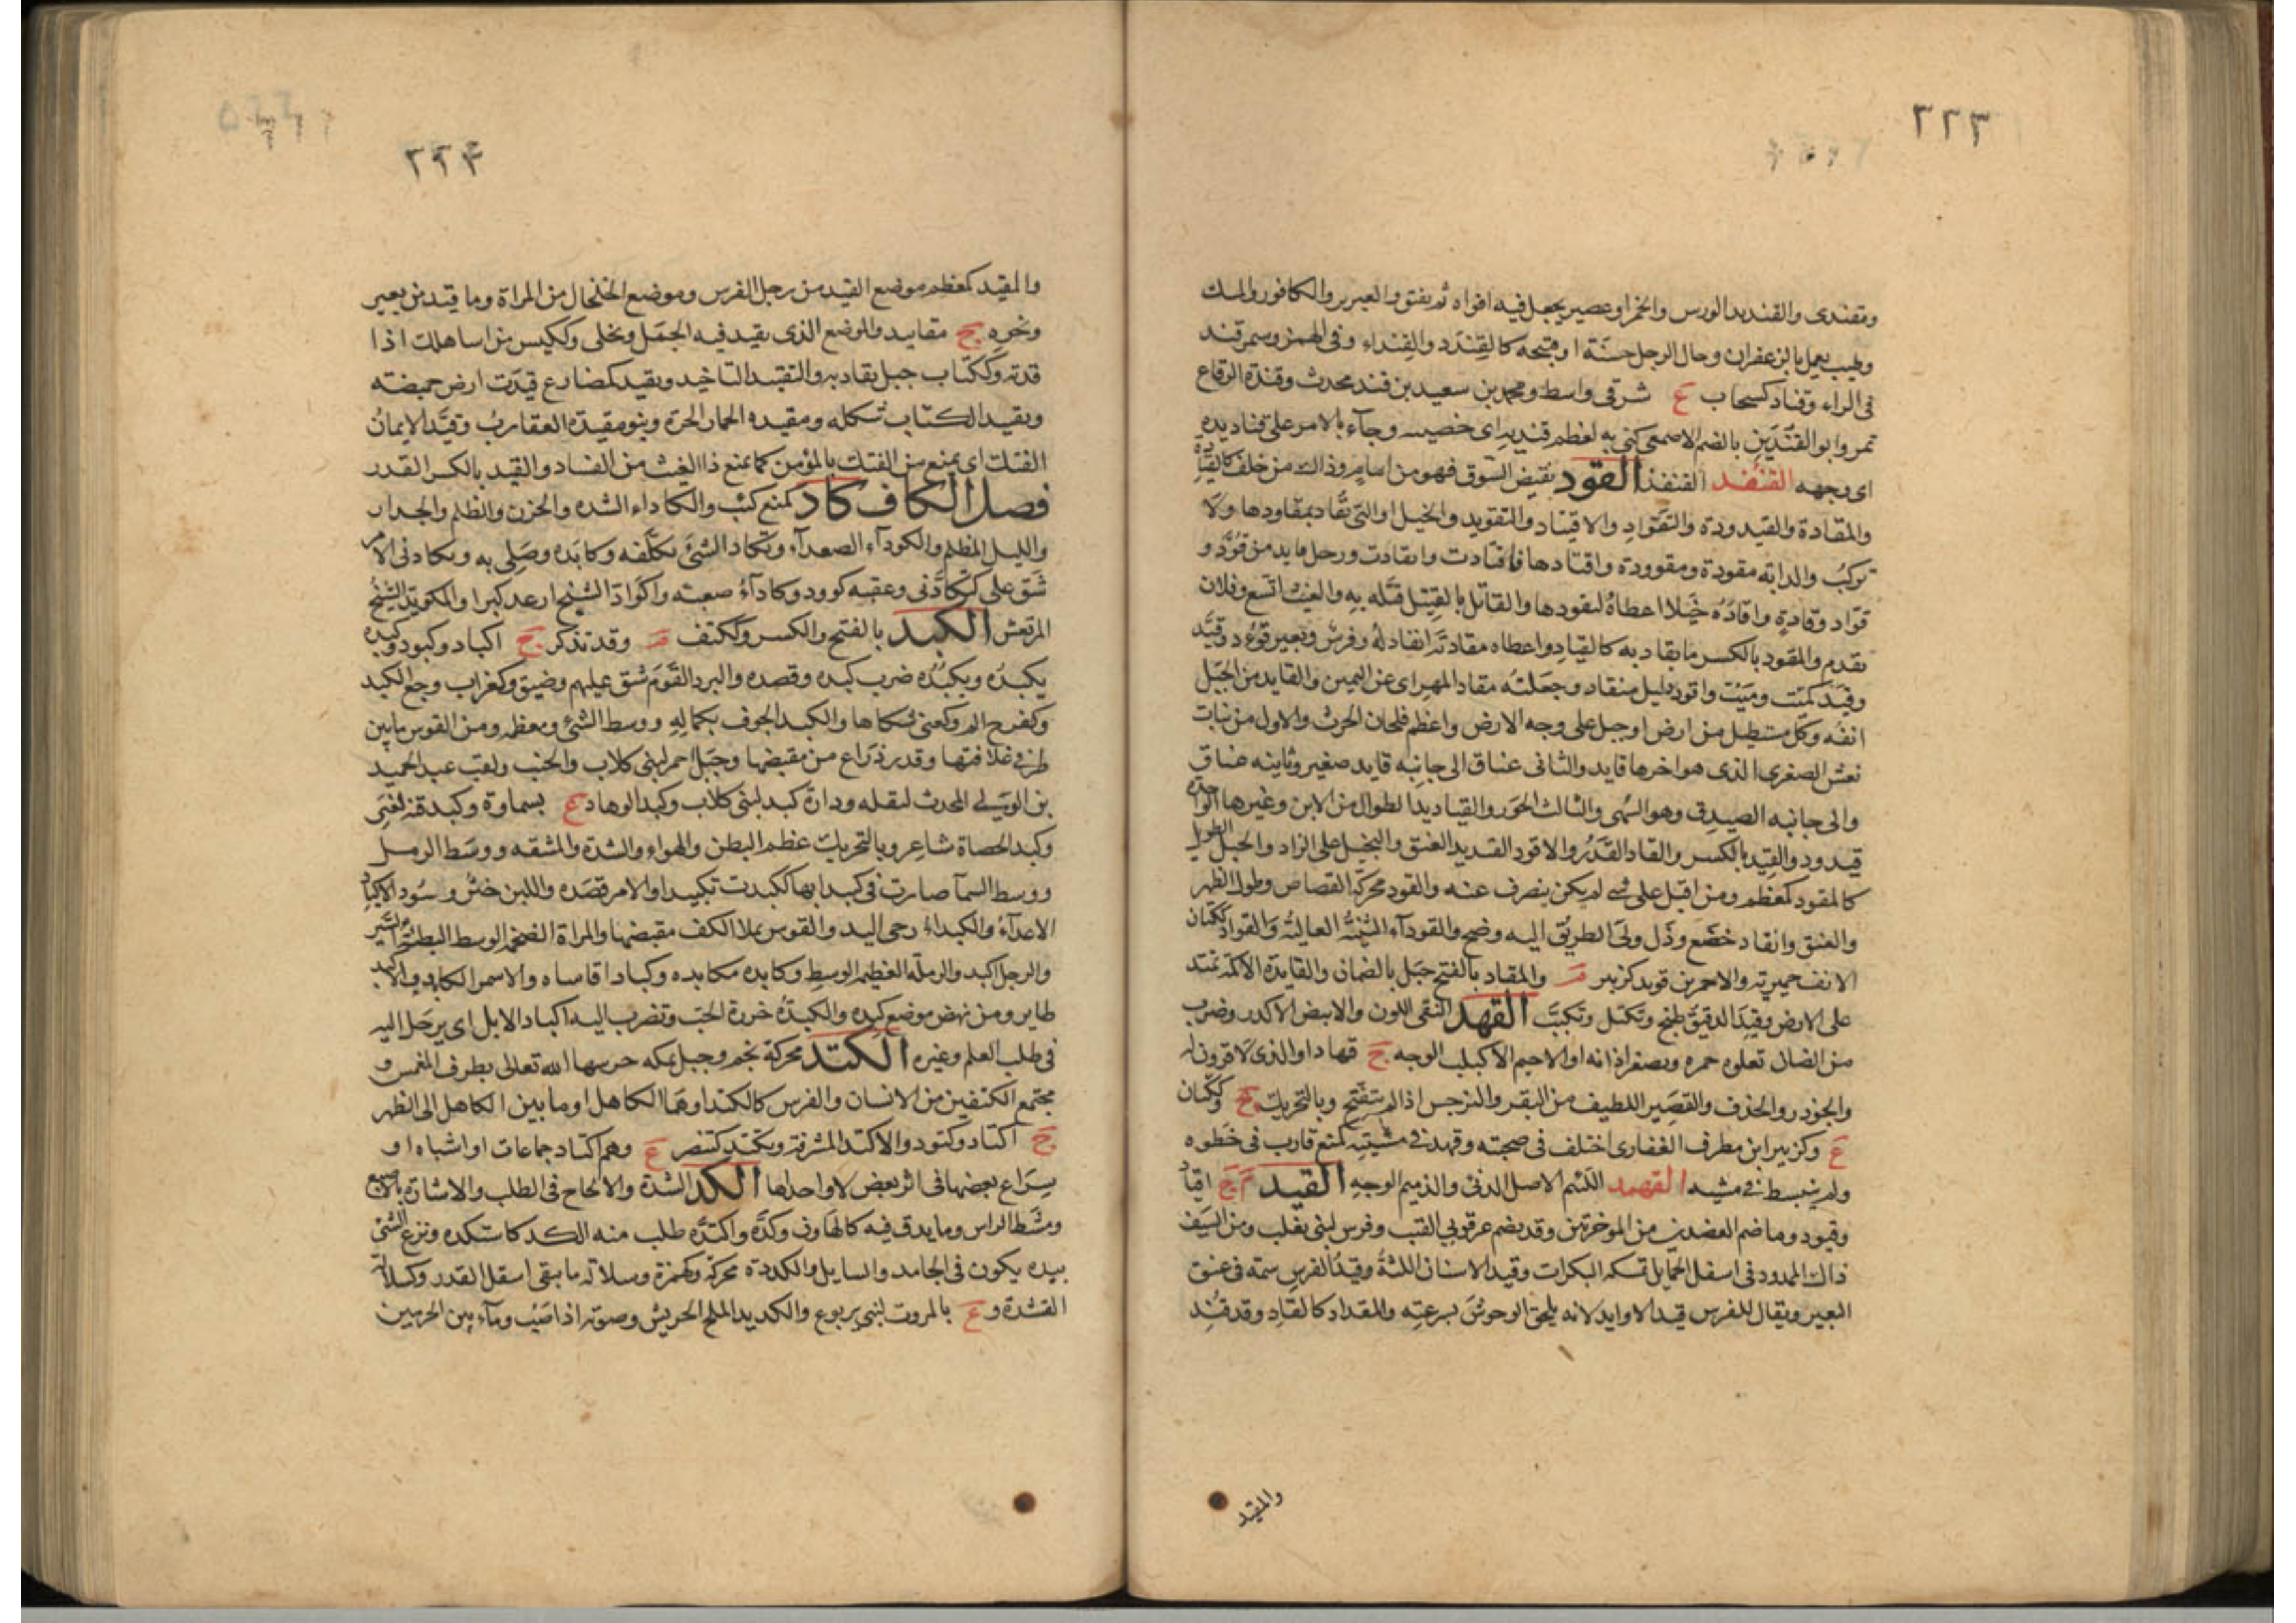 ٢٢٣
ومقندى والقنديد الورس والخمر او عصير يجعل فيه افواه ثم يفتق والعبير والكافور والمسك
وطيب يعمل بالزعفران وحال الرجل حسنة او قبيحة كالقندد والقنداء وفى الهمز وسمرقند
فى الراء وقناد كسحاب ع شرقى واسط ومحمد بن سعيد بن قند محدث وقندة الرقاع
تمر وابو القندين بالضم الاصمعى كنى به لعظم قنديه اى خصييه وجاء بالامر على قناديده
اى وجهه القنفد القنفذ القود نقيض السوق فهو من امام وذاك من خلف كالقيادة
والمقادة والقيدودة والتقواد والاقتياد والتقويد والخيل او التى تقاد بمقاودها ولا
تركب والدابة مقودة ومقوودة واقتادها فاقتادت وانقادت ورجل قايد من قود و
قواد وقادة واقاده خيلا اعطاه ليقودها والقاتل بالقتيل قتله به والغيث اتسع وفلان
تقدم والمقود بالكسر ما يقاد به كالقياد واعطاه مقادته انقاد له وفرس وبعير قوود وقيد
وقيد كميت وميت واقود ذليل منقاد وجعلته مقاد المهر اى عن اليمين والقايد من الجبل
انفه وكل مستطيل من ارض او جبل على وجه الارض واعظم فلجان الحرث والاول من نبات
نعش الصغرى الذى هو اخرها قايد والثانى عناق الى جانبه قايد صغير وثانيه عناق
والى جانبه الصيدق وهو السهى والثالث الحور والقياديد الطوال من الاتن وغيرها الواحدة
قيدود والقيد بالكسر والقاد القدر والاقود الشديد العنق والبخيل على الزاد والجبل الطويل
كالمقود كمعظم ومن اقبل على شى لم يكن ينصرف عنه والقود محركة القصاص وطول الظهر
والعنق وانقاد خضع وذل ولى الطريق اليه وضح والقوداء الثنية العالية والقواد ككتان
الانف حميرية والاحمر بن قويد كزبير والمقاد بالفتح جبل بالصمان والقايدة الاكمة تمتد
على الارض وقيد الدقيق طبخ وتكتل وتكبب القهد النقى اللون والابيض الاكدر وضرب
من الضان تعلوه حمرة وتصغر اذانه او الاحيم الاكيلب الوجه ج قهاد او الذى لا قرون له
والجوذر والحذف والقصير اللطيف من البقر والنرجس اذا لم يتفتح وبالتحريك وككتان
ع وكزبير ابن مطرف الغفارى اختلف فى صحبته وقهد فى مشيته كمنع قارب فى خطوه
ولم ينبسط فى مشيه القهمد اللئيم الاصل الدنى والذميم الوجه القيد م ج اقياد
وقيود وما ضم العضدين من الموخرتين وقد يضم عرقوبى القتب وفرس لبنى تغلب ومن السيف
ذاك الممدود فى اسفل الحمايل تمسكه البكرات وقيد الاسنان اللثة وقيد الفرس سمة فى عنق
البعير ويقال للفرس قيد الاوابد لانه يلحق الوحوش بسرعته والمقدار كالقاد وقد قيد
والمقيد
٢٢٤
والمقيد كمعظم موضع القيد من رجل الفرس وموضع الخلخال من المراة وما قيد من بعير
ونحوه ج مقاييد والموضع الذى يقيد فيه الجمل ويخلى وككيس من اساهلك اذا
قدته وككتاب حبل يقاد به والتقييد التاخيد وتقيد كمضارع قيدت ارض حميضة
وتقييد الكتاب شكله ومقيدة الحمار الحرة وبنو مقيدة العقارب وقيد الايمان
الفتك اى يمنع من الفتك بالمؤمن كما يمنع ذا العيث من الفساد والقيد بالكسر القدر
فصل الكاف كاد كمنع كئب والكاداء الشدة والحزن والظلم والجدار
والليل المظلم والكوداء الصعداء وتكاد الشئ تكلفه وكابده وصلى به وتكادنى الامر
شق على كتكادنى وعقبة كوود وكاداء صعبة واكواد الشيخ ارعد كبرا والمكوئد الشيخ
المرتعش الكبد بالفتح والكسر وككتف وقد تذكر ج اكباد وكبود وكبده
يكبده ويكبده ضرب كبده وقصده والبرد القوم شق عليهم وضيق وكغراب وجع الكبد
وكفرح الم وكعنى شكاها والكبد الجوف بكماله ووسط الشئ ومعظمه ومن القوس ما بين
طرفى علاقتها وقدر ذراع من مقبضها وجبل احمر لبنى كلاب والجنب ولقب عبد الحميد
بن الوليد المحدث لثقله ودارة كبد لبنى كلاب وكبد الوهاد ع بسماوة وكبد قنة لغنى
وكبد الحصاة شاعر وبالتحريك عظم البطن والهواء والشدة والمشقة ووسط الرمل
ووسط السماء صارت فى كبدايها ككبدت تكبيدا والامر قصده واللبن خثر وسود الاكباد
الاعداء والكبداء رحى اليد والقوس يملا الكف مقبضها والمراة الضخمة الوسط البطئة السير
والرجل اكبد والرملة العظيمة الوسط وكابده مكابدة وكبادا قاساه والاسم الكابد والاكبد
طاير ومن نهض موضع كبده والكبدة خرزة الحب وتضرب اليه اكباد الابل اى يرحل اليه
فى طلب العلم وغيره الكتد محركة نجم وجبل بمكة حرسها الله تعالى بطرف المغمس و
مجتمع الكتفين من الانسان والفرس كالكتد او هما الكاهل او ما بين الكاهل الى الظهر
ج اكتاد وكتود والاكتد المشرفه وتكتد كتنصر ع وهم اكتاد جماعات او اشباه او
سراع بعضها فى اثر بعض لا واحد لها الكد الشدة والالحاح فى الطلب والاشارة بالاصبع
ومشط الراس وما يدق فيه كالهاون وكده واكتده طلب منه الكد كاستكده ونزع الشئ
بيده يكون فى الجامد والسايل والكددة محركة وكهمزة وسلالة ما بقى اسفل القدر وكسلالة
القشدة و ع بالمروت لبنى يربوع والكديد الملح الجريش وصوته اذا صب وماء بين الحرمين